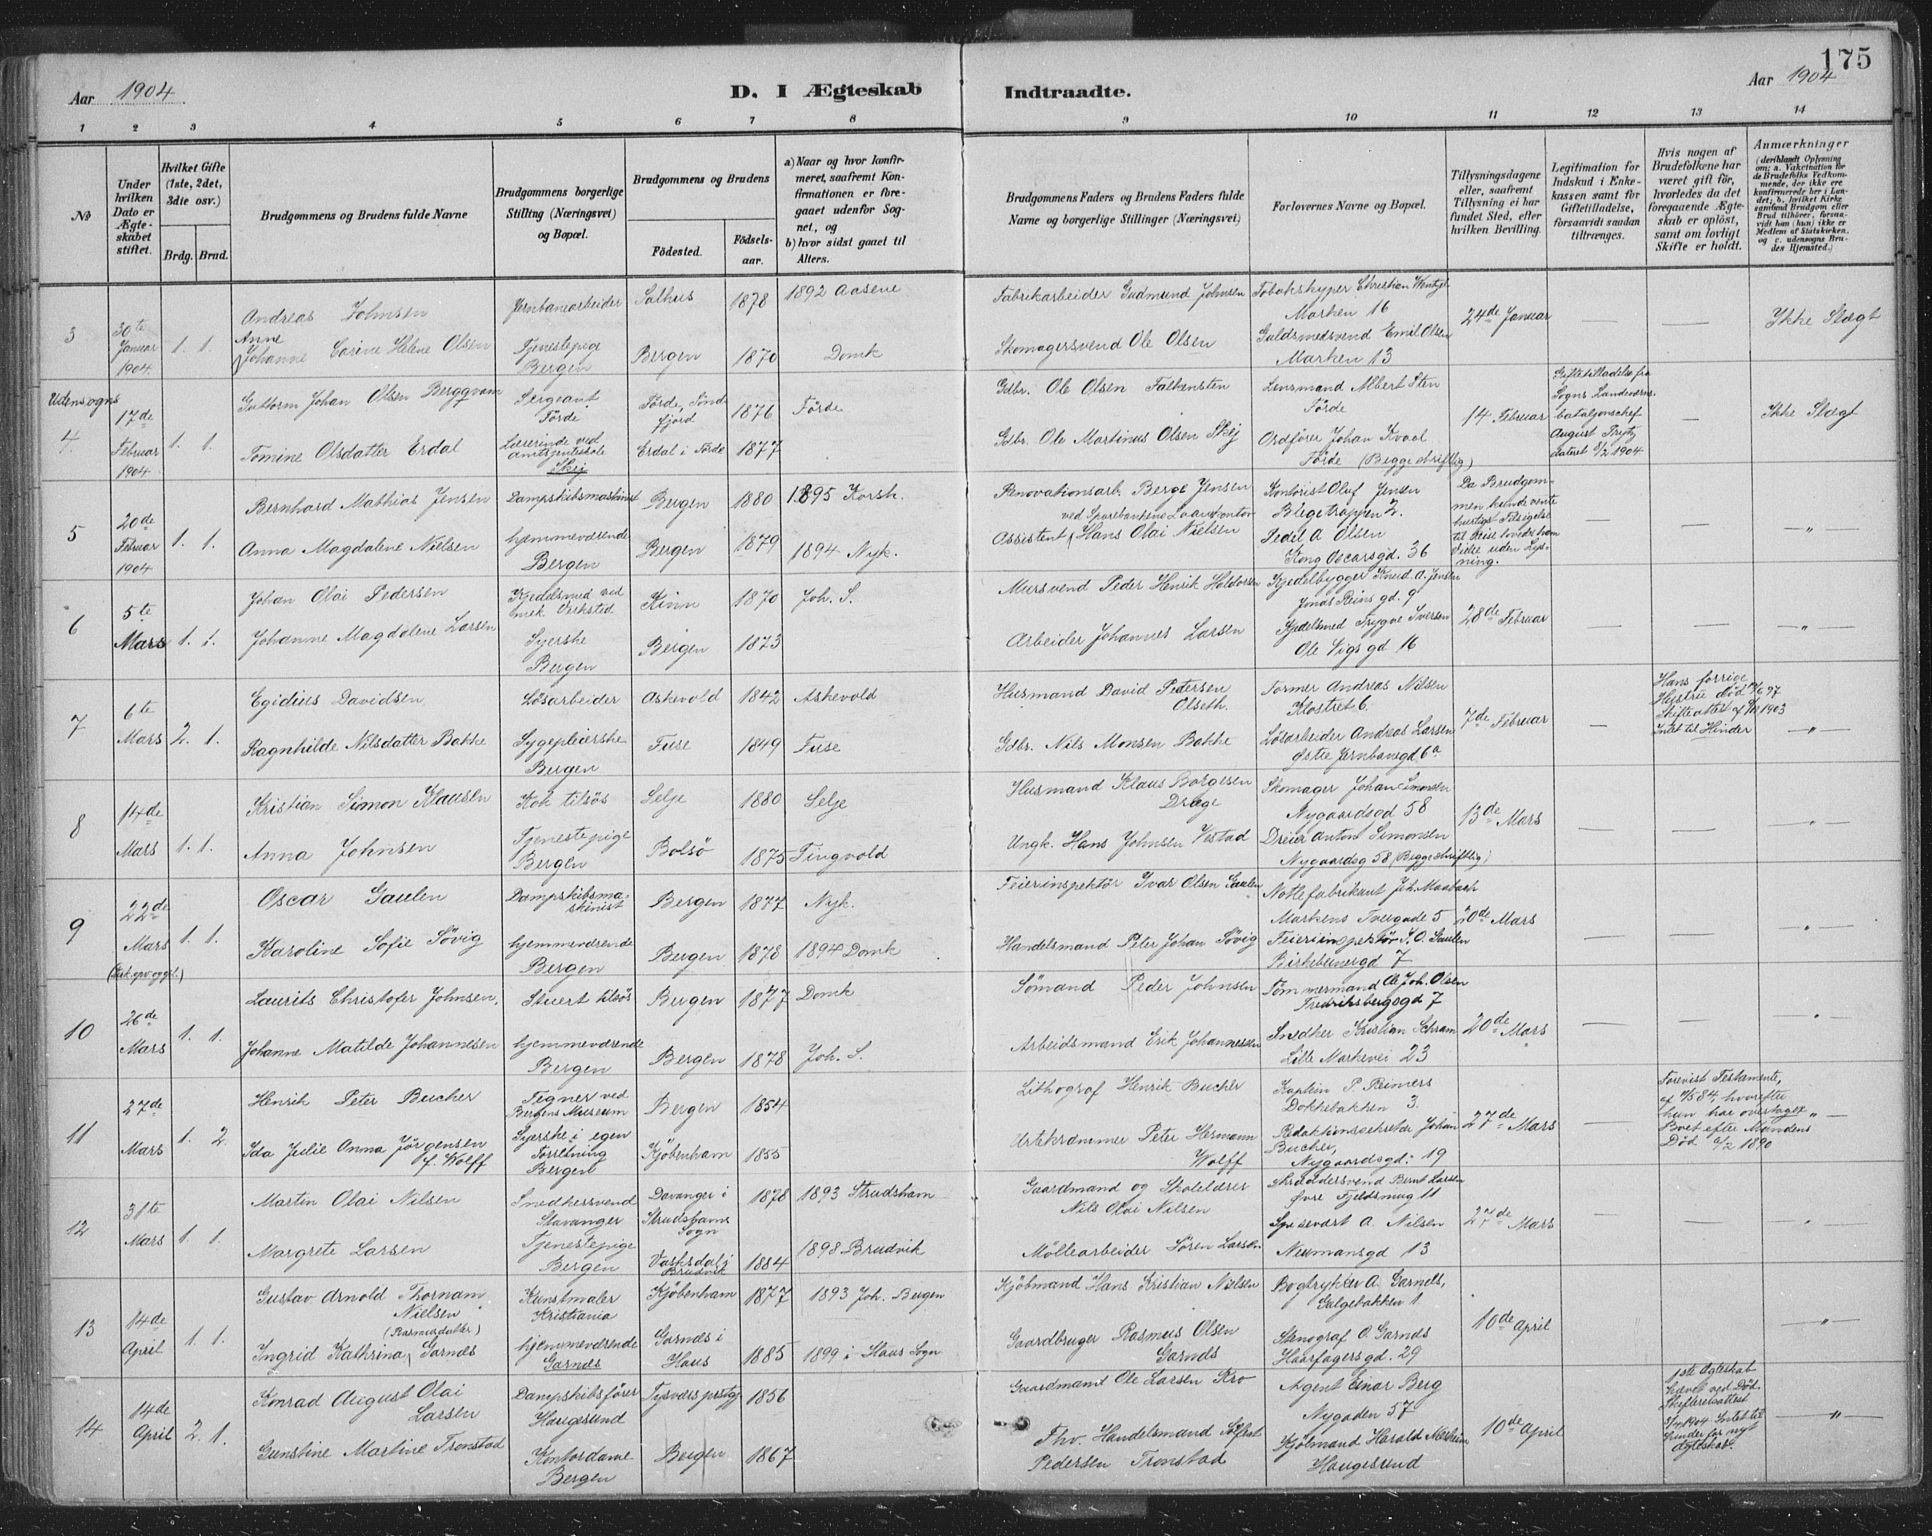 175
Aar 1904
D. I Ægteskab
Indtraadte.
Aar 1904
1 2 3 4 5 6 7 8 9 10 11 12 13 14
No
Under hvilken Dato er Ægteskabet stiftet.
Hvilket Gifte (1ste, 2det, 3die osv.)
Brdg. Brud.
Brudgommens og Brudens fulde Navne
Brudgommens borgerlige Stilling (Næringsvei) og Bopæl.
Brudgommens og Brudens
Födested.
Födselsaar.
a) Naar og hvor konfirmeret, saafremt Konfirmationen er foregaaet udenfor Sognet, og
b) hvor sidst gaaet til Alters.
Brudgommens Faders og Brudens Faders fulde Navne og borgerlige Stillinger (Næringsvei)
Forlovernes Navne og Bopæl.
Tillysningsdagene eller, saafremt Tillysning ei har fundet Sted, efter hvilken Bevilling.
Legitimation for Indskud i Enkekassen samt for Giftetilladelse, forsaavidt saadan tiltrænges.
Hvis nogen af Brudefolkene har været gift før, hvorledes da det foregaaende Ægteskab er oplöst, samt om lovligt Skifte er holdt.
Anmærkninger
3
30te Januar 1904
1. 1.
Andreas Johnsen
Jernbanearbeider
Salhus
1878
1892 Aasene
Fabrikarbeider Gudmund Johnsen
Tobakshyper Christian Wentzel
Marken 16
24de Januar
Ikke Slægt
Anne Johanne Carine Helene Olsen
Tjenestepige Bergen
Bergen
1870
Domk
Skomagersvend Ole Olsen
Guldsmedsvend Emil Olsen
Marken 13
Udensogns
4
17de Februar 1904
1. 1.
Guttorm Johan Olsen Berggvam
Sergeant Förde
Förde, Söndfjord
1876
Förde
Gdbr. Ole Olsen Falkensten
Lensmand Albert Sten
Förde
14 Februar
Giftetilladelse fra Sogns Landeværnsbataljonschef August dateret 8/2 1904
Ikke Slægt
Tomine Olsdatter Erdal
Lærerinde ved Amtsgenteskole
Skej
Erdal i Förde
1877
Gdbr. Ole Martinus Olsen Skej
Ordfører Johan Kvaal
Förde (Begge skriftlig)
5
20de Februar 1904
1. 1.
Bernhard Mathias Jensen
Dampskibsmaskinist
Bergen
1880
1895 Korsk.
Renovationsarb. Berge Jensen
Kontorist Oluf Jensen
Blegetrappen 2.
Da Brudgommen kunde vente hurtigt Tilsigelse til Reise
uden Lysning.
Anna Magdalene Nielsen
hjemmeværende Bergen
Bergen
1879
1894 Nyk.
Assistent ved Sparebankens Laanekontor Hans Olai Nielsen
Pedel A Olsen
Kong Oscarsgd. 36
6
5te Mars
1. 1.
Johan Olai Pedersen
Kjedelsmed ved mek. Verksted
Kinn
1870
Joh. S.
Mursvend Peder Henrik Haldorsen
Kjedelbygger Knud A. Jensen
Jonas Reins gd. 9
28de Februar
Johanne Magdalene Larsen
Syerske Bergen
Bergen
1873
Arbeider Johannes Larsen
Kjedelsmed Trygve Iversen
Ole Vigs gd 16
7
6te Mars
2. 1.
Egidius Davidsen
Løsarbeider
Askevold
1842
Askevold
Husmand David Petersen Olseth.
Former Andreas Nilsen
Klostret 6.
7de Februar
Hans forrige Hustru død
Skifteattest af 1903
Intet til Hinder
Ragnhilde Nilsdatter Bakke
Sygepleierske Bergen
Fuse
1849
Fuse
Gdbr. Nils Monsen Bakke
Løsarbeider Andreas Larsen
Østre Jernbanegd. 6a
8
14de Mars
1. 1.
Kristian Simon Klausen
Kok tilsøs
Selje
1880
Selje
Husmand Klaus Borgesen Drage
Skomager Johan Simonsen
Nygaardsgd 58
13de Mars
Anna Johnsen
Tjenestepige Bergen
Bolsö
1875
Tingvold
Ungk. Hans Johnsen Vestad
Dreier Anton Simonsen
Nygaardsg 58 (Begge skriftlig)
9
22de Mars
1. 1.
Oscar Gaulen
Dampskibsmaskinist
Bergen
1877
Nyk.
Feierinspektör Ivar Olsen Gaulen
Nottefabrikant Joh. Masbach
Markens Tvergade 5
20de Mars
Karoline Sofie Søvig
hjemmeværende Bergen
Bergen
1878
1894 Domk
Handelsmand Peter Johan Søvig
Feierinspektör I. O. Gaulen
Birkebeinergd 7
10
26de Mars
1. 1.
Laurits Christofer Johnsen.
Stuert tilsøs
Bergen
1877
Domk
Sömand Peder Johnsen
Tömmermand Ole Joh. Olsen
Fredriksbergsgd 7
20de Mars
Johanne Matilde Johannesen
hjemmeværende Bergen
Bergen
1878
Joh. S.
Arbeidsmand Erik Johannessen
Snedker Kristian Schram
Lille Markevei 23
11
27de Mars
1. 2.
Henrik Peter Bucher
Tegner ved Bergens Museum
Bergen
1854
Lithograf Henrik Bucher
Kaptein P. Reimers
Dokkebakken 3.
27de Mars
Forevist Testamente, af 84 hvorefter hun har overtaget Boet efter Mandens Död 1890
Ida Julie Anna Jørgensen f. Wolff
Syerske i egen Forretning Bergen
Kjøbenhavn
1855
Urtekræmmer Peter Hermann Wolff
Redaktionssekretær Johan Bucher,
Nygaardsgd. 19
12
31te Mars
1. 1.
Martin Olai Nilsen
Snedkersvend Stavanger
Davanger i Strudshavns Sogn
1878
1893 Strudsham
Gaardmand og Skolelærer
Nils Olai Nilsen
Skræddersvend Bernt Larsen
Øvre Fjeldsmug 11
27de Mars
Margrete Larsen
Tjenestepige Bergen
Vaksdal i Brudvik
1884
1898 Brudvik
Möllearbeider Sören Larsen
Spisevært A. Nilsen
Neumansgd 13
13
14de April
1. 1.
Gustav Arnold Thornam Nielsen
Kunstmaler Kristiania
Kjöbenhavn
1877
1893 Joh. Bergen
Kjöbmand Hans Kristian Nielsen
Bogtrykker A. Garnæs,
Galgebakken 1
10de April
Ingrid Kathrina (Rasmusdatter) Garnæs
hjemmeværende Garnæs
Garnæs i Haus
1885
1899 i Haus Sogn
Gaardbruger Rasmus Olsen Garnæs
Stenograf O. Garnæs
Haarfagersgd. 29
14
14de April
2. 1.
Konrad August Olai Larsen
Dampskibsfører Haugesund
Tysvær prstgj
1856
Gaardmand Ole Larsen Kro
Agent Einar Berg
Nygaden 57
10de April
1ste Ægteskab hævet ved Död. Skifteretsattest 1904 Intet til Hinder for nyt Ægteskab.
Gunstine Martine Tronstad
Kontordame Bergen
Bergen
1867
Fhv. Handelsmand
Pedersen Tronstad
Kjöbmand Harald
Haugesund